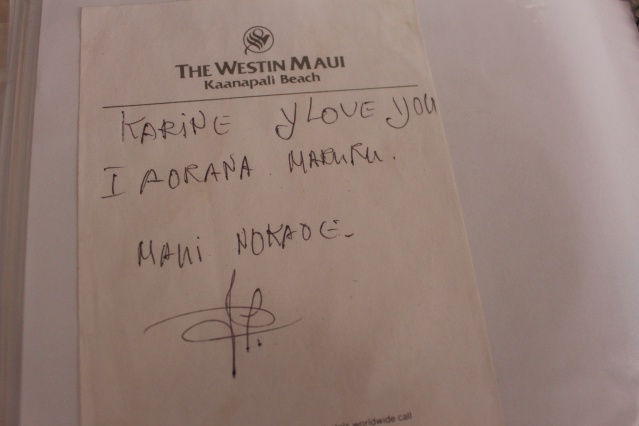 THE WESTIN MAUI
Kaanapali Beach
KARINE Y LOVE YOU
I AORANA MARURU.
MAUI NOKAOE-
worldwide call